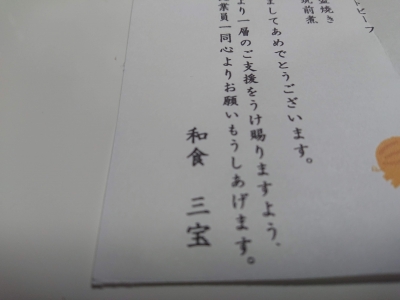 トビーフ
焼き
筑前煮
ましてあめでとうございます。
より一層のご支援をうけ賜りますよう、
業員一同心よりお願いもうしあげます。
和食 三宝